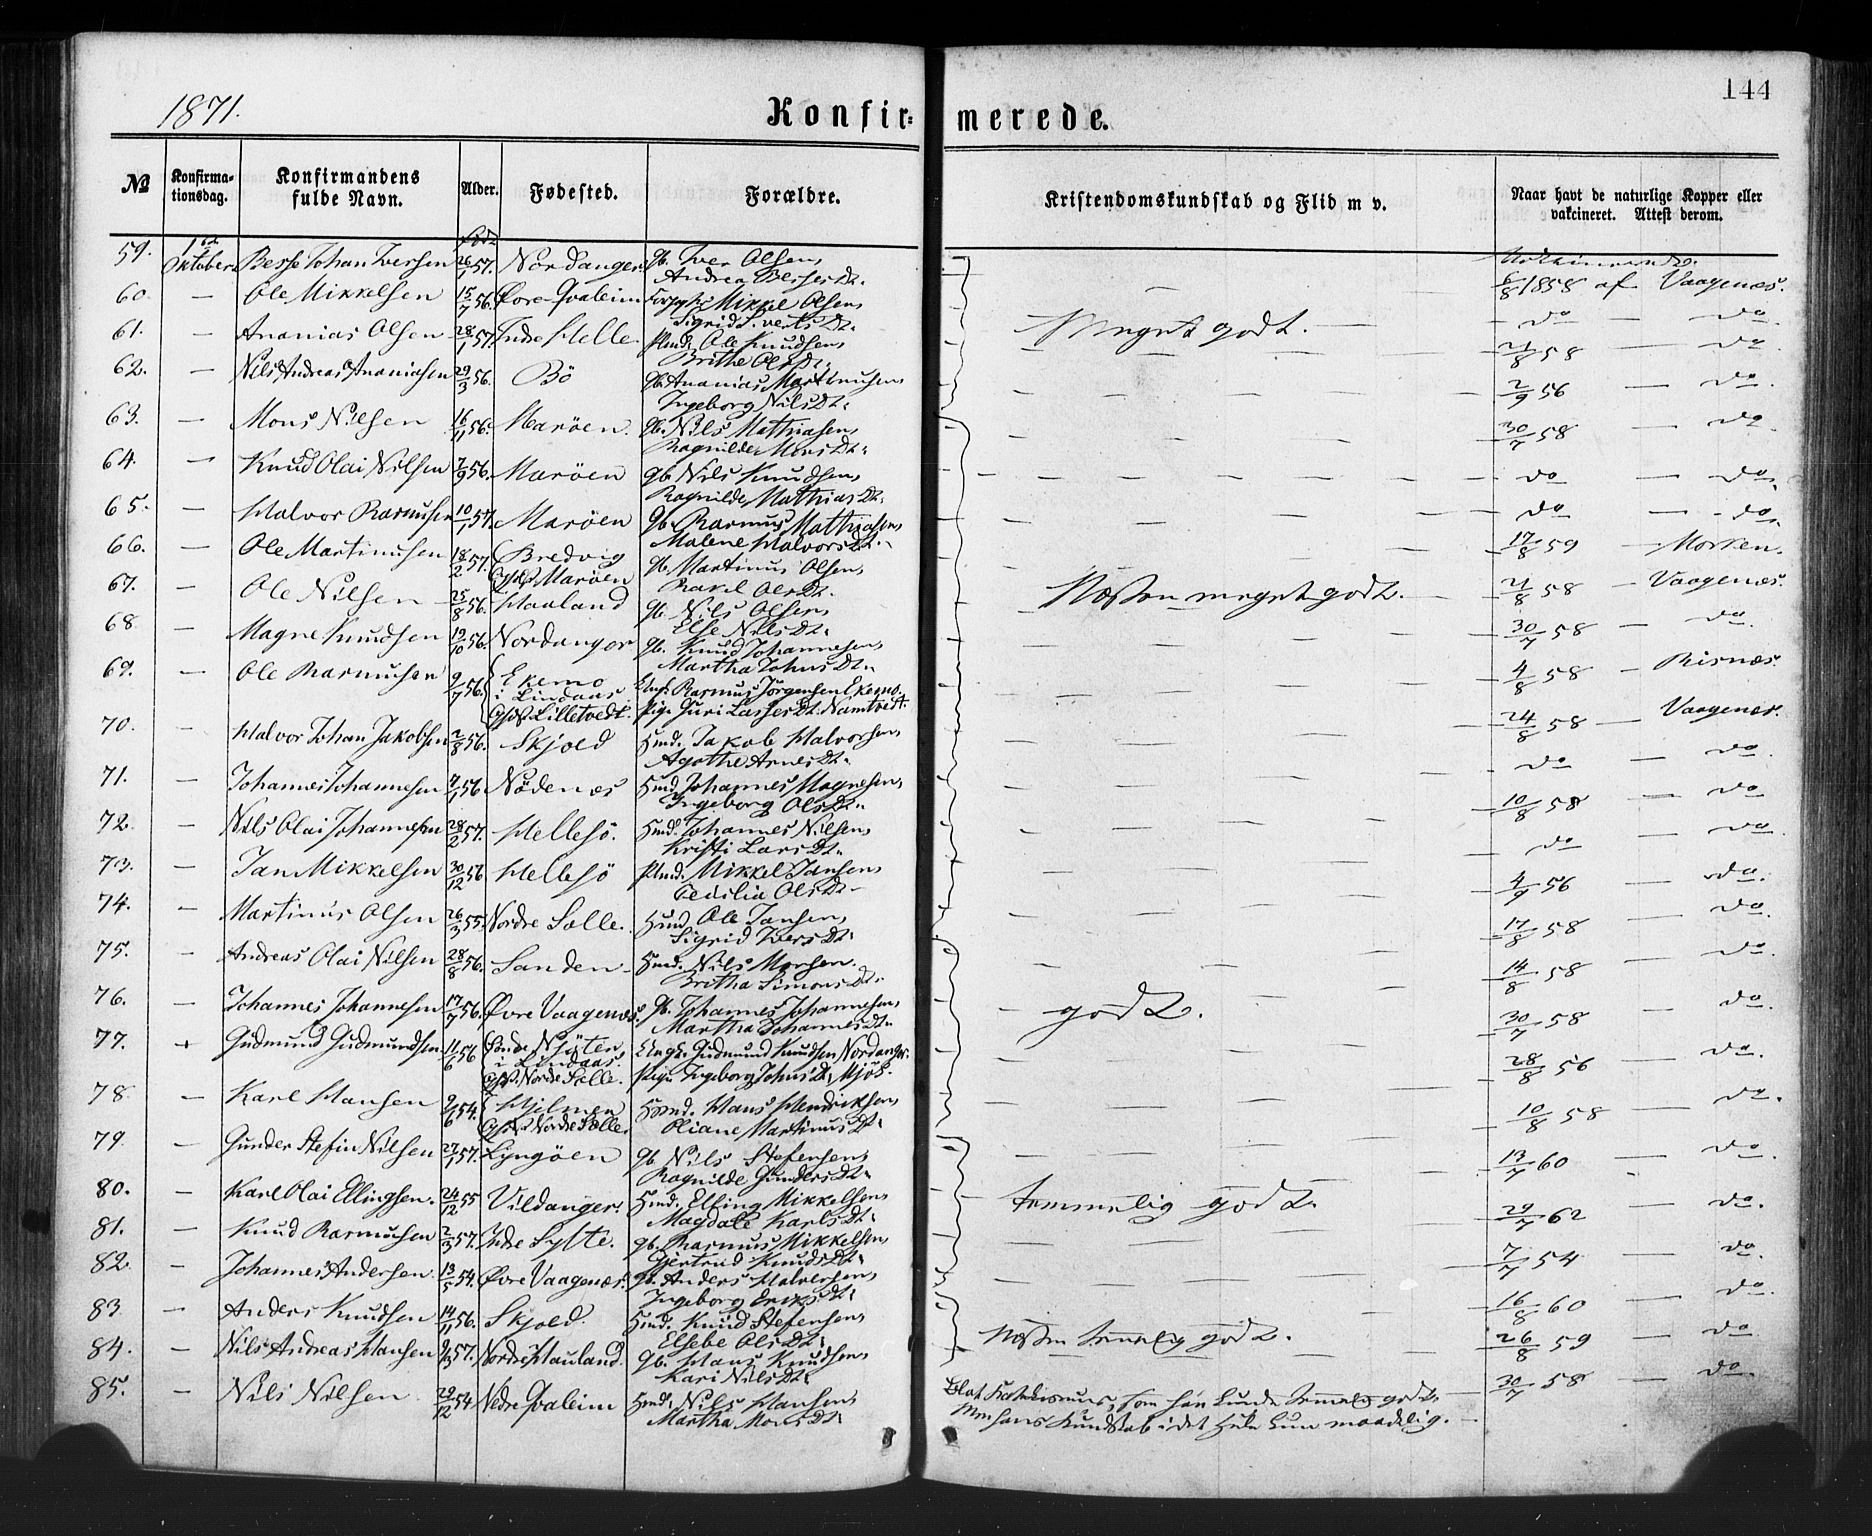 144
1871.
Konfir- merede.
№ Konfirma-tionsdag. Konfirmandens fulde Navn. Alder. Fødested. Forældre. Kristendomskundskab og Flid m v. Naar havt de naturlige Kopper eller vakcineret. Attest derom.
59. 1ste Oktober Besse Johan Iversen 26/1 57. Nordanger gb. Iver Olsen,
Andrea Besses Dt. 6/8 1858 af Vaagenæs.
60. — Ole Mikkelsen 15/7 56. Øvre Qvaleim Mikkel Olsen,
Sigrid Siverts Dt. do — do
61. — Ananias Olsen 28/1 57. Indre Helle Ole Knudsen, Meget godt.
Brithe Ols Dt. 24/8 58 — do.
62. — Nils Andreas Ananiasen 29/3 56. Bö gb. Ananias Martinusen,
Ingeborg Nils Dt. 2/9 56 — do.
63. — Mons Nilsen 16/11 56. Maröen. gb. Nils Mathiasen,
Ragnilde Mons Dt. 30/7 58 — do
64. — Knud Olai Nilsen 7/9 56. Maröen gb. Nils Knudsen,
Ragnilde Mathias Dt. do — do.
65. — Halvor Rasmusen 10/1 57. Maröen gb. Rasmus Mathiasen,
Malene Halvors Dt. do — do.
66. — Ole Martinusen 18/2 57. Bredvig
Maröen gb. Martinus Olsen,
Rakel Ols Dt. 17/8 59 — Morken.
67. — Ole Nilsen 25/8 56. Hauland gb. Nils Olsen,
Else Nils Dt. Næsten meget godt. 24/8 58 — Vaagenæs.
68. — Magne Knudsen 19/10 56. Nordanger gb. Knud Johannesen,
Martha Johns Dt. 30/7 58 — do.
69. — Ole Rasmusen 9/7 56. Ekemo
i Lindaas
Lilletvedt. Rasmus Jörgensen Ekemo.
Pige Guri Lasses Dt. Namtvedt. 4/8 58 — Risnæs.
70. — Halvor Johan Jakobsen 2/8 56. Skjold Hmd. Jakob Halvorsen,
Agathe Arnes Dt. 24/8 58 — Vaagenæs.
71. — Johannes Johannesen 4/1 56 Nödenæs Hmd. Johannes Magnesen,
Ingeborg Ols Dt. do — do
72. — Nils Olai Johannesen 28/2 57. Hellesö. Hmd. Johannes Nilsen,
Kristi Lars Dt. 10/8 58 — do
73. — Jan Mikkelsen 30/12 56 Hellesö Mikkel Jansen,
Cecilia Ols Dt. do — do.
74. — Martinus Olsen 26/3 55. Nordre Sælle. Hmd. Ole Jansen,
Sigrid Ivers Dt. 4/9 56 — do.
75. — Andreas Olai Nilsen 28/8 56. Sanden Hmd. Nils Monsen.
Britha Simons Dt. 17/8 58 — do.
76. — Johannes Johannesen 17/7 56. Øvre Vaagenæs. gb. Johannes Johannesen,
Martha Johannes Dt. godt. 14/8 58 — do.
77. + Gudmund Gudmundsen 11/6 56
i Lindaas.
Nordre Sælle. Gudmund Knudsen Nordanger.
Pige Ingeborg Johns Dt. Mjös. 30/7 58 — do
78. — Karl Hansen 9/6 54. Hjelmen
Nordre Sælle. Hmd. Hans Hendriksen,
Oliane Martinus Dt. 28/8 56 — do.
79. — Gunder Stefin Nilsen 27/1 57. Lyngöen gb. Nils Stefensen,
Ragnilde Gunders Dt. 10/8 58 — do.
80. — Karl Olai Ellingsen. 24/12 55 Vildanger. Hmd. Elling Mikkelsen,
Magdale Karls Dt. temmelig godt. 13/7 60 — do.
81. — Knud Rasmusen 2/3 57. Indre Sylte. gb. Rasmus Mikkelsen,
Gjertrud Knuds Dt. 29/7 62 — do.
82. — Johannes Andersen 13/5 54. Øvre Vaagenæs. gb. Anders Halvorsen,
Ingeborg Eriks Dt. 7/7 54 — do.
83. — Anders Knudsen 14/11 56. Skjold. Hmd. Knud Stefensen,
Elsebe Ols Dt. 16/8 60 — do.
84. — Nils Andreas Hansen 9/3 57. Nordre Hauland. gb. Hans Knudsen,
Kari Nils Dt. Næsten temmelig godt. 26/8 59 — do
85. — Nils Nilsen 29/12 54 Nedre Qvaleim Hmd. Nils Hansen,
Martha Mons Dt. Katekismus, som han kunde temmelig godt.
Men hans Kundskab i det Hele kun maadelig. 30/7 58 — do.